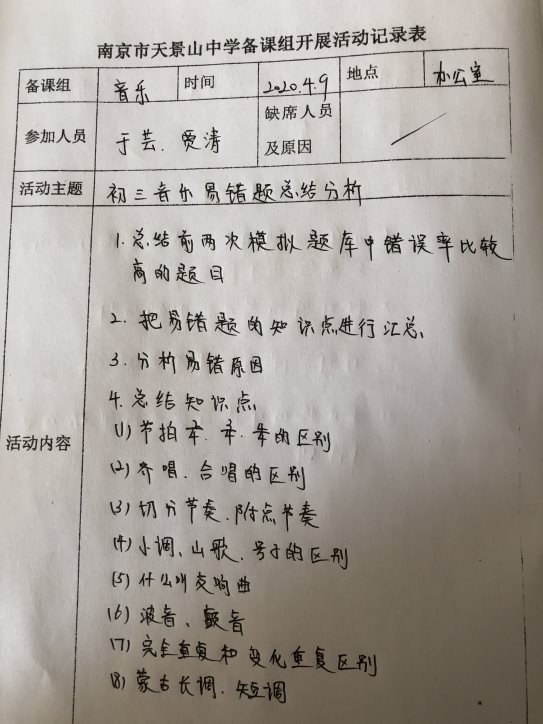 南京市天景山中学备课组开展活动记录表
备课组 音乐 时间 2020.4.9 地点 办公室
参加人员 于芸、贾清 缺席人员及原因
活动主题 初三音乐易错题总结分析
活动内容
1. 总结前两次模拟题库中错误率比较
高的题目
2. 把易错题的知识点进行汇总
3. 分析易错原因
4. 总结知识点
(1) 节拍 的区别
(2) 齐唱、合唱的区别
(3) 切分节奏、附点节奏
(4) 小调、山歌、号子的区别
(5) 什么叫交响曲
(6) 波音、颤音
(7) 完全重复和变化重复区别
(8) 蒙古长调、短调